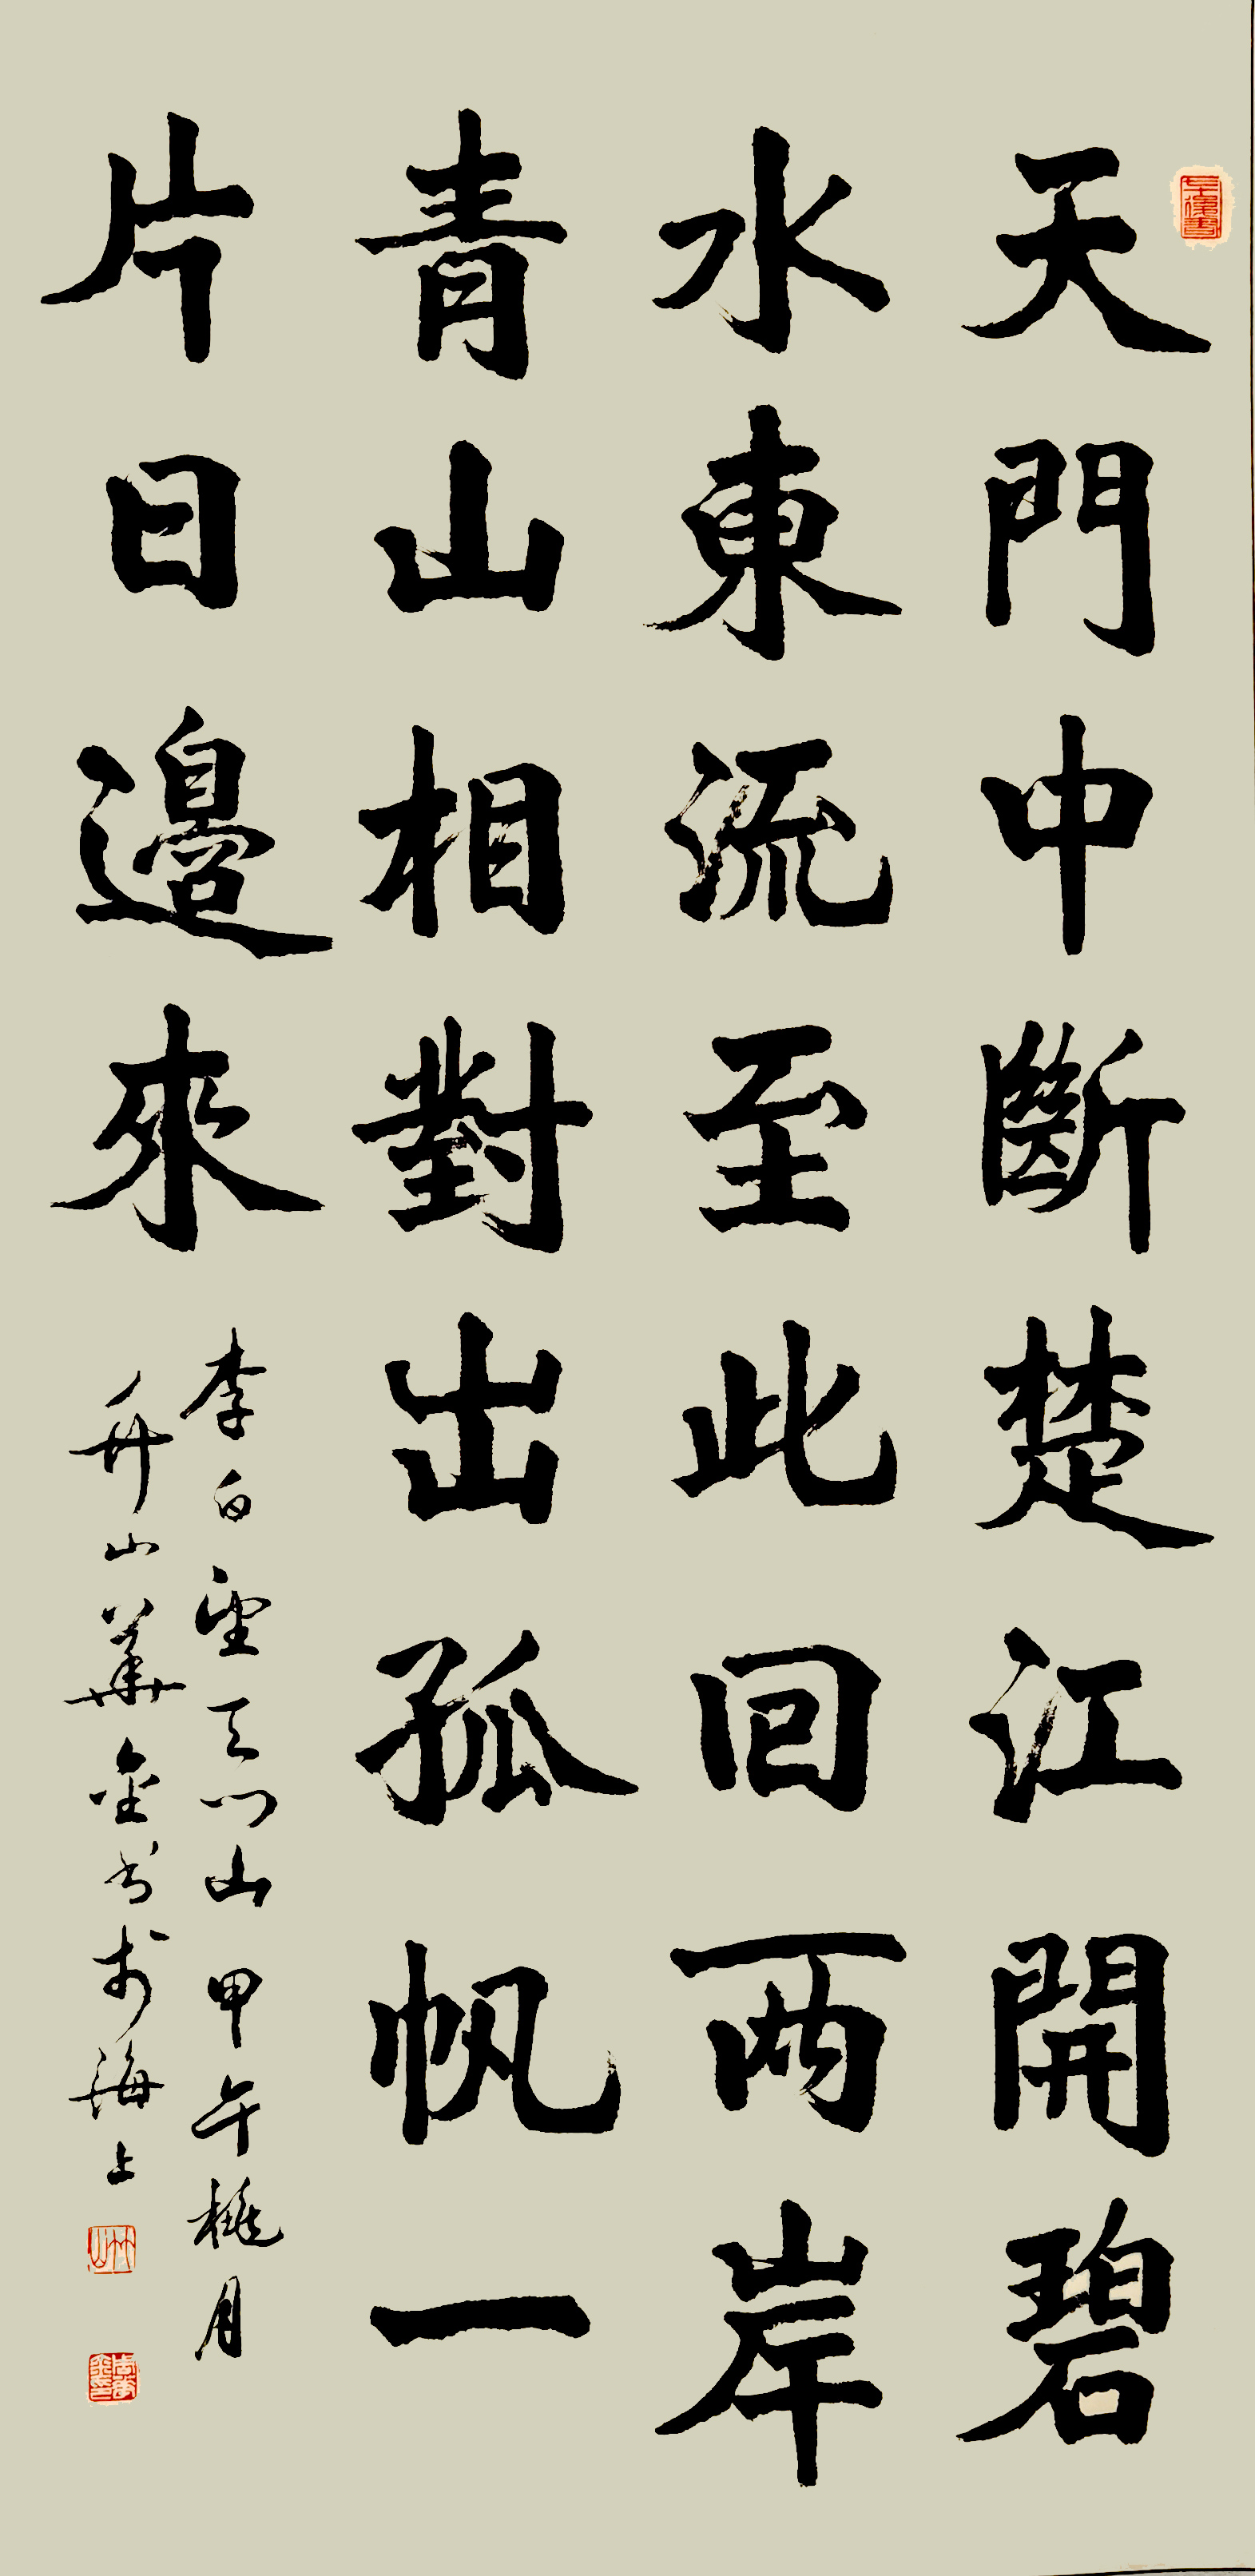 天門中斷楚江開碧
水東流至此回兩岸
青山相對出孤帆一
片日邊來
李白望天門山甲午桃月
升山華金书於海上